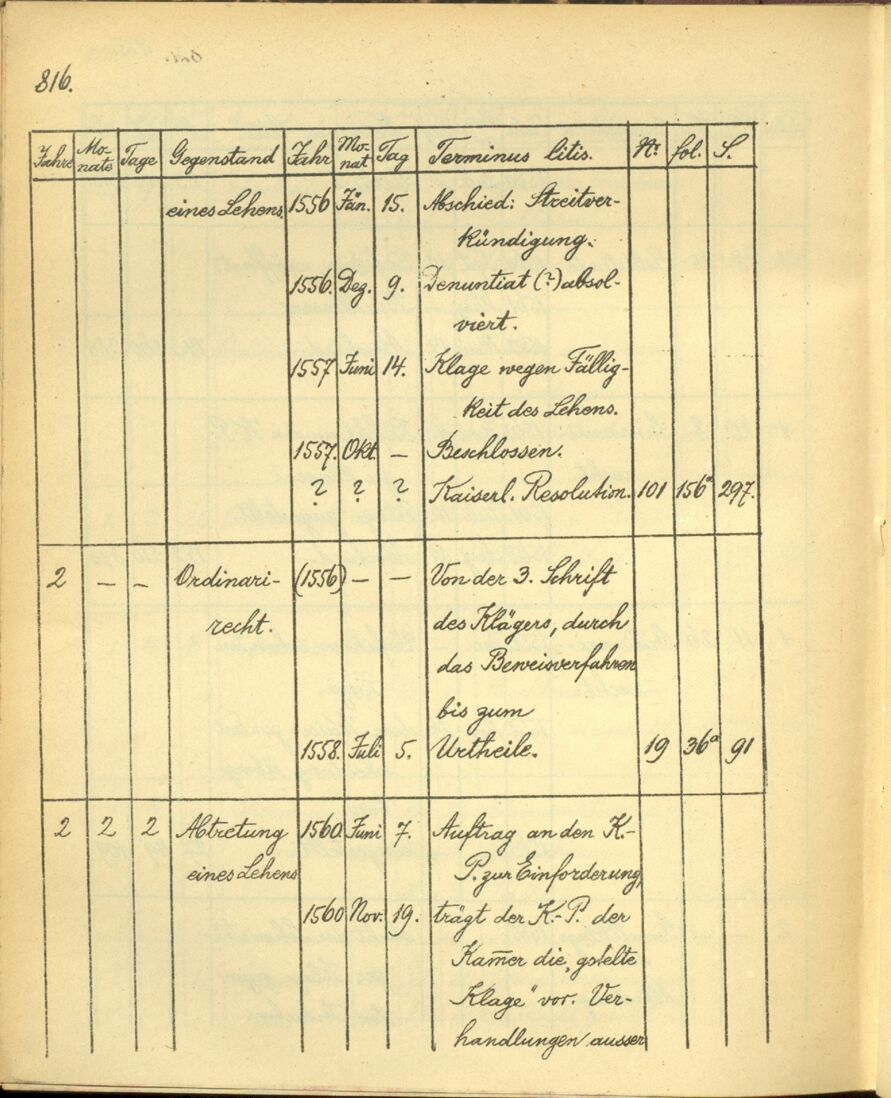 816.
Jahre Mo-nate Tage Gegenstand Jahr Mo-nat Tag Terminus litis. Nr. fol. S.
eines Lehens. 1556 Jän. 15. Abschied: Streitver-
kündigung.
1556. Dez. 9. Denuntiat (?) absol-
viert.
1557 Juni 14. Klage wegen Fällig-
keit des Lehens.
1557. Okt. – Beschlossen.
? ? ? Kaiserl. Resolution. 101 156a 297.
2 – – Ordinari- (1556) – – Von der 3. Schrift
recht. des Klägers, durch
das Beweisverfahren
bis zum
1558. Juli 5. Urtheile. 19 36a 91
2 2 2 Abtretung 1560. Juni 7. Auftrag an den K.-
eines Lehens P. zur Einforderung,
1560 Nov. 19. trägt der K.-P. der
Kam̄er die „gstelte
Klage" vor. Ver-
handlungen ausser